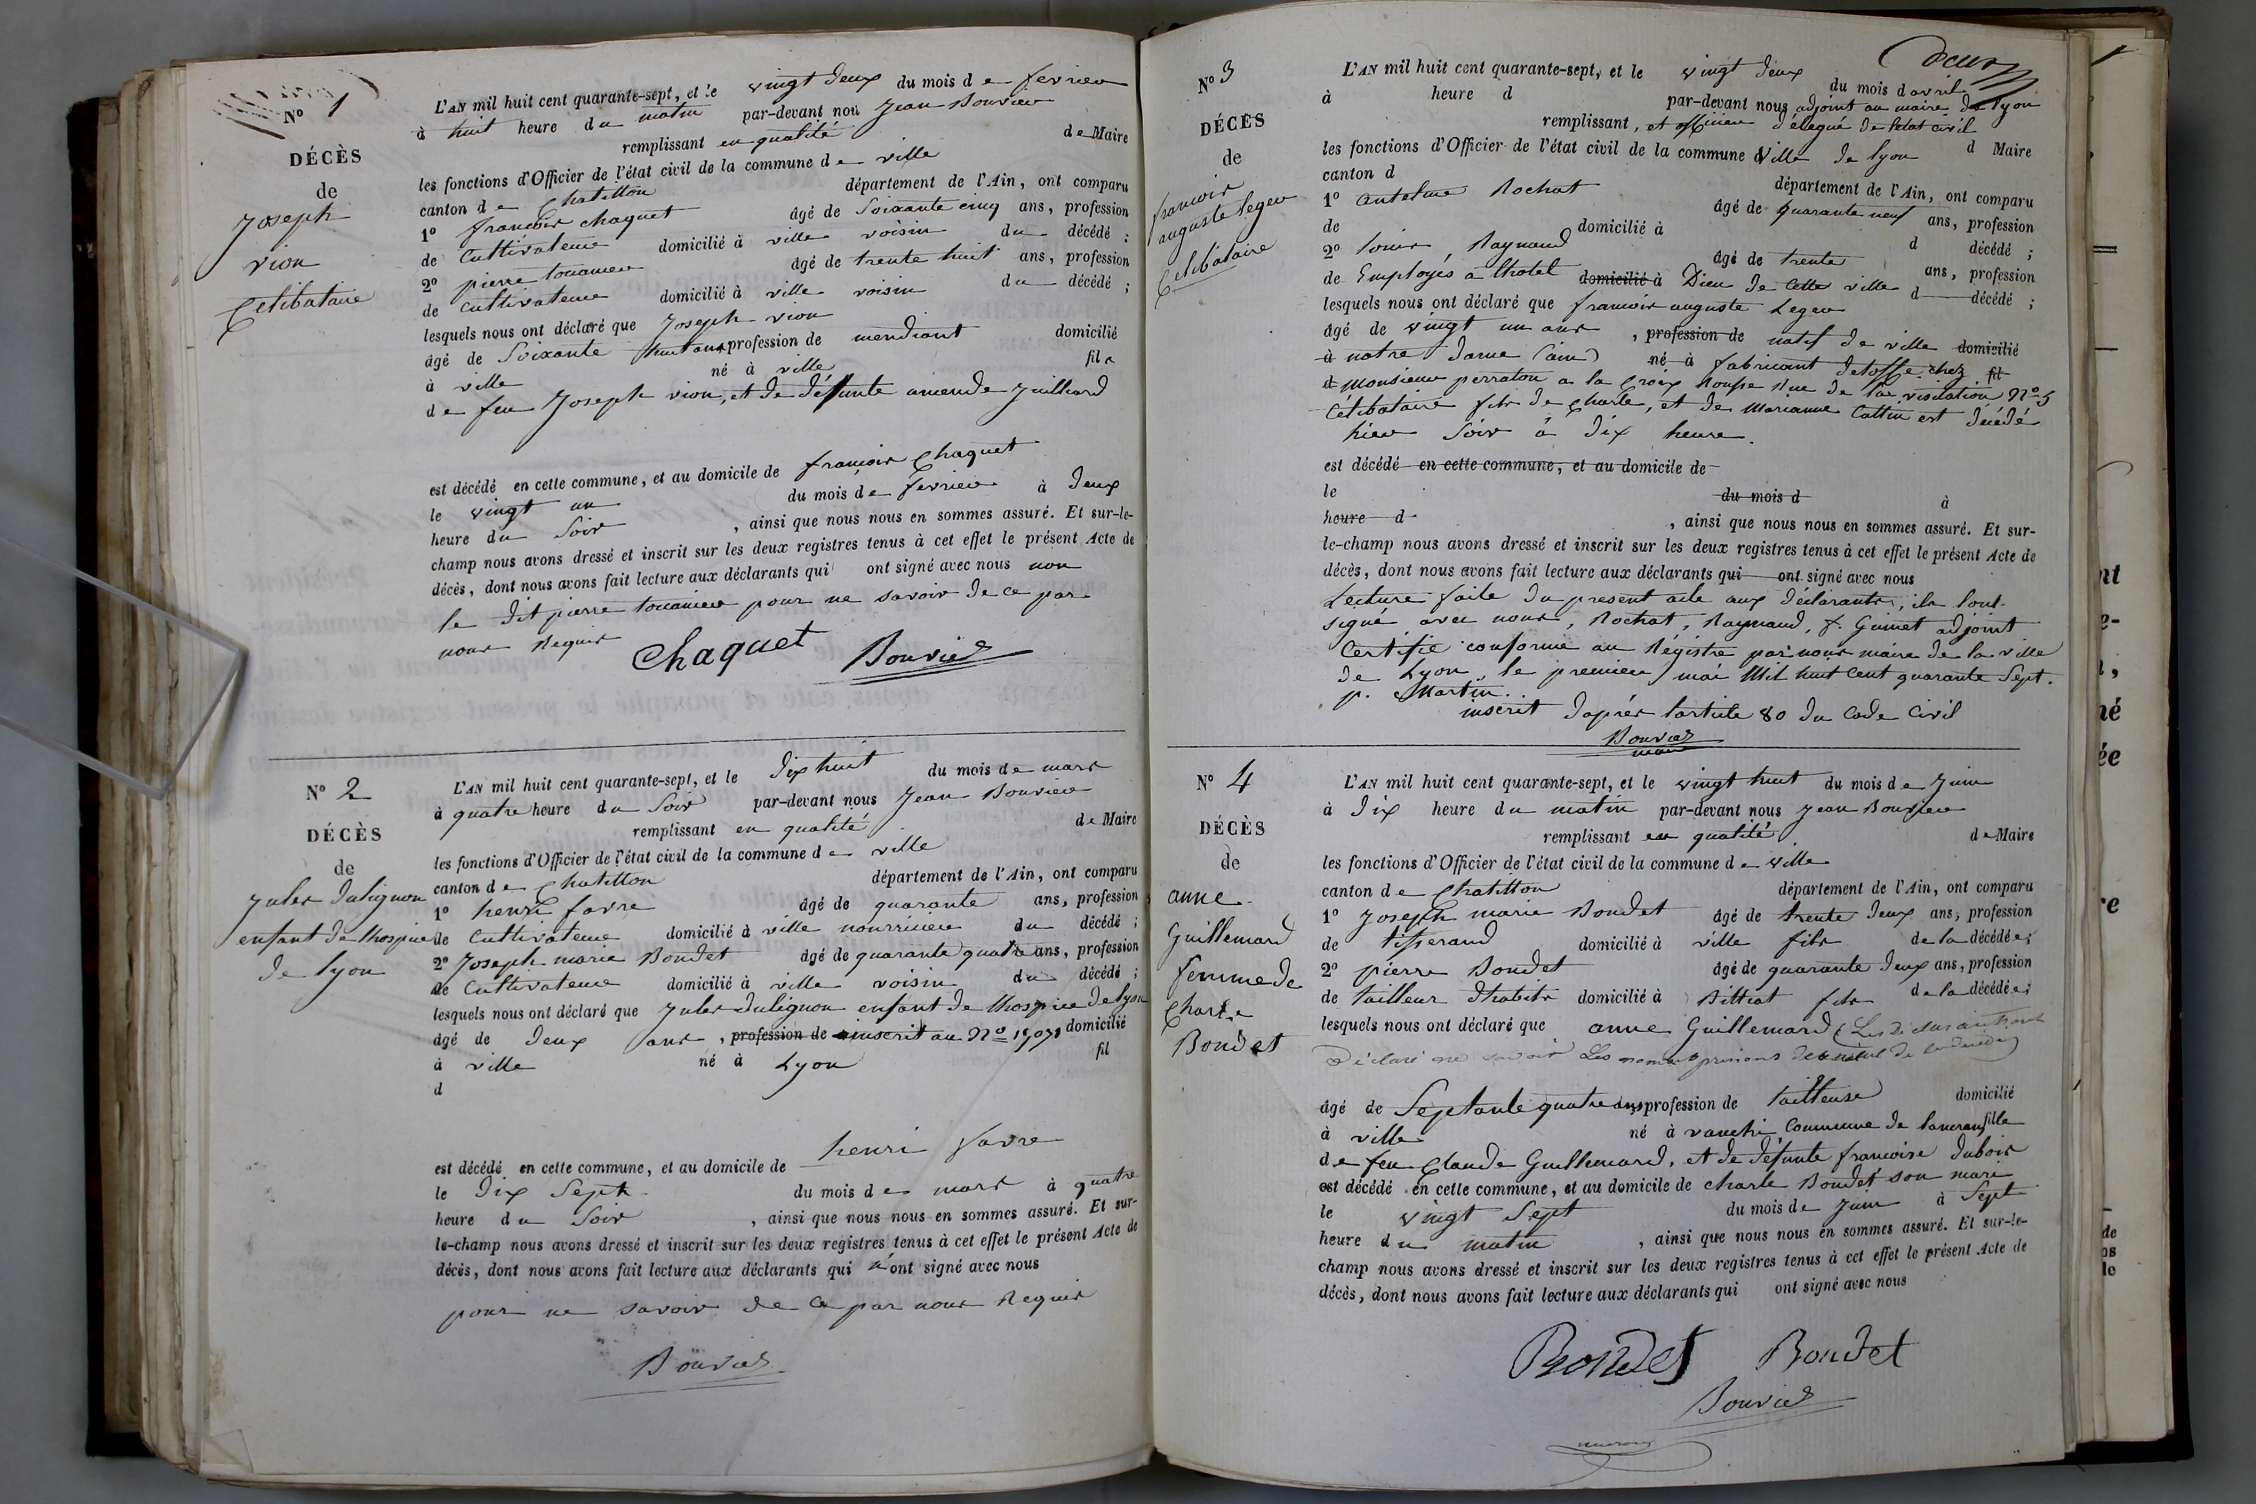 N° 1
DÉCÈS
de
Joseph
vion
Célibataire
L'AN mil huit cent quarante-sept, et le vingt deux du mois de fevrier
à huit heure du matin par-devant nou Jean Bouvier
remplissant en qualité de Maire
les fonctions d'Officier de l'état civil de la commune de ville
canton de Chatillon département de l'Ain, ont comparu
1° francois Chaquet âgé de Soixante cinq ans, profession
de Cultivateur domicilié à ville voisin du décédé ;
2° pierre âgé de trente huit ans, profession
de cultivateur domicilié à ville voisin du décédé ;
lesquels nous ont déclaré que Joseph vion
âgé de Soixante huit ans profession de mendiant domicilié
à ville né à ville fils
de feu Joseph vion, et de défunte Juilliard
est décédé en cette commune, et au domicile de francois Chaquet
le vingt un du mois de fevrier à deux
heure du Soir , ainsi que nous nous en sommes assuré. Et sur-le-
champ nous avons dressé et inscrit sur les deux registres tenus à cet effet le présent Acte de
décès, dont nous avons fait lecture aux déclarants qui ont signé avec nous non
le dit pierre pour ne savoir de ce par
nous Requis
Chaquet Bouvier
N° 2
DÉCÈS
de
Jules Dulignon
enfant de lhospice
de Lyon
L'AN mil huit cent quarante-sept, et le dix huit du mois de mars
à quatre heure du Soir par-devant nous Jean Bouvier
remplissant en qualité de Maire
les fonctions d'Officier de l'état civil de la commune de ville
canton de Chatillon département de l'Ain, ont comparu
1° henri favre âgé de quarante ans, profession
de Cultivateur domicilié à ville nourricier du décédé ;
2° Joseph marie Bondet âgé de quarante quatre ans, profession
de Cultivateur domicilié à ville voisin du décédé ;
lesquels nous ont déclaré que Jules Dulignon enfant de lhospice de Lyon
âgé de deux ans , profession de inscrit au N° domicilié
à ville né à Lyon fil
d
est décédé en cette commune, et au domicile de henri favre
le dix Sept du mois de mars à quatre
heure du Soir , ainsi que nous nous en sommes assuré. Et sur-
le-champ nous avons dressé et inscrit sur les deux registres tenus à cet effet le présent Acte de
décès, dont nous avons fait lecture aux déclarants qui n'ont signé avec nous
pour ne savoir de ce par nous Requis
Bouvier
deux
N° 3
DÉCÈS
de
francois
auguste Leger
Célibataire
L'AN mil huit cent quarante-sept, et le vingt deux du mois d avril
à heure d par-devant nous adjoint au maire de Lyon
remplissant, et officier délégué de létat civil d Maire
les fonctions d'Officier de l'état civil de la commune d Ville de Lyon
canton d département de l'Ain, ont comparu
1° Antelme Rochat âgé de quarante neuf ans, profession
de domicilié à d décédé ;
2° Louis Raymand âgé de trente ans, profession
de Employés à lhotel domicilié à Dieu de Cette ville d décédé ;
lesquels nous ont déclaré que francois auguste Leger
âgé de vingt un ans , profession de natif de ville domicilié
à notre dame (ain) né à fabricant detoffe chez fil
d Monsieur perraton a la Croix Rousse Rue de la visitation N° 5
Célibataire fils de Charle, et de Marianne Cottin est décédé
hier Soir à dix heure.
est décédé en cette commune, et au domicile de
le du mois d à
heure d , ainsi que nous nous en sommes assuré. Et sur-
le-champ nous avons dressé et inscrit sur les deux registres tenus à cet effet le présent Acte de
décès, dont nous avons fait lecture aux déclarants qui ont signé avec nous
Lecture faite du present acte aux déclarants, ils lont
signé avec nous, Rochat, Raymand, f. Guinet adjoint
Certifié conforme au Régistre par nous maire de la ville
de Lyon, le premier mai Mil huit Cent quarante Sept.
p. Martin.
inscrit daprés larticle 80 du Code Civil
Bouvier
maire
N° 4
DÉCÈS
de
anne
Guillemard
femme de
Charle
Bondet
L'AN mil huit cent quarante-sept, et le vingt huit du mois de Juin
à dix heure du matin par-devant nous Jean Bouvier
remplissant en qualité de Maire
les fonctions d'Officier de l'état civil de la commune de ville
canton de Chatillon département de l'Ain, ont comparu
1° Joseph marie Bondet âgé de trente deux ans, profession
de tisserand domicilié à ville fils de la décédée;
2° pierre Bondet âgé de quarante deux ans, profession
de tailleur dhabits domicilié à fils de la décédée;
lesquels nous ont déclaré que anne Guillemard (Les
déclaré ne savoir Les noms prenoms
âgé de Septante quatre ans profession de tailleuse domicilié
à ville né à commune de fille
de feu Claude Guillemard, et de défunte francoise dubois
est décédé en cette commune, et au domicile de charle Bondet son mari
le vingt Sept du mois de Juin à Sept
heure du matin , ainsi que nous nous en sommes assuré. Et sur-le-
champ nous avons dressé et inscrit sur les deux registres tenus à cet effet le présent Acte de
décès, dont nous avons fait lecture aux déclarants qui ont signé avec nous
Bondet Bondet
Bouvier